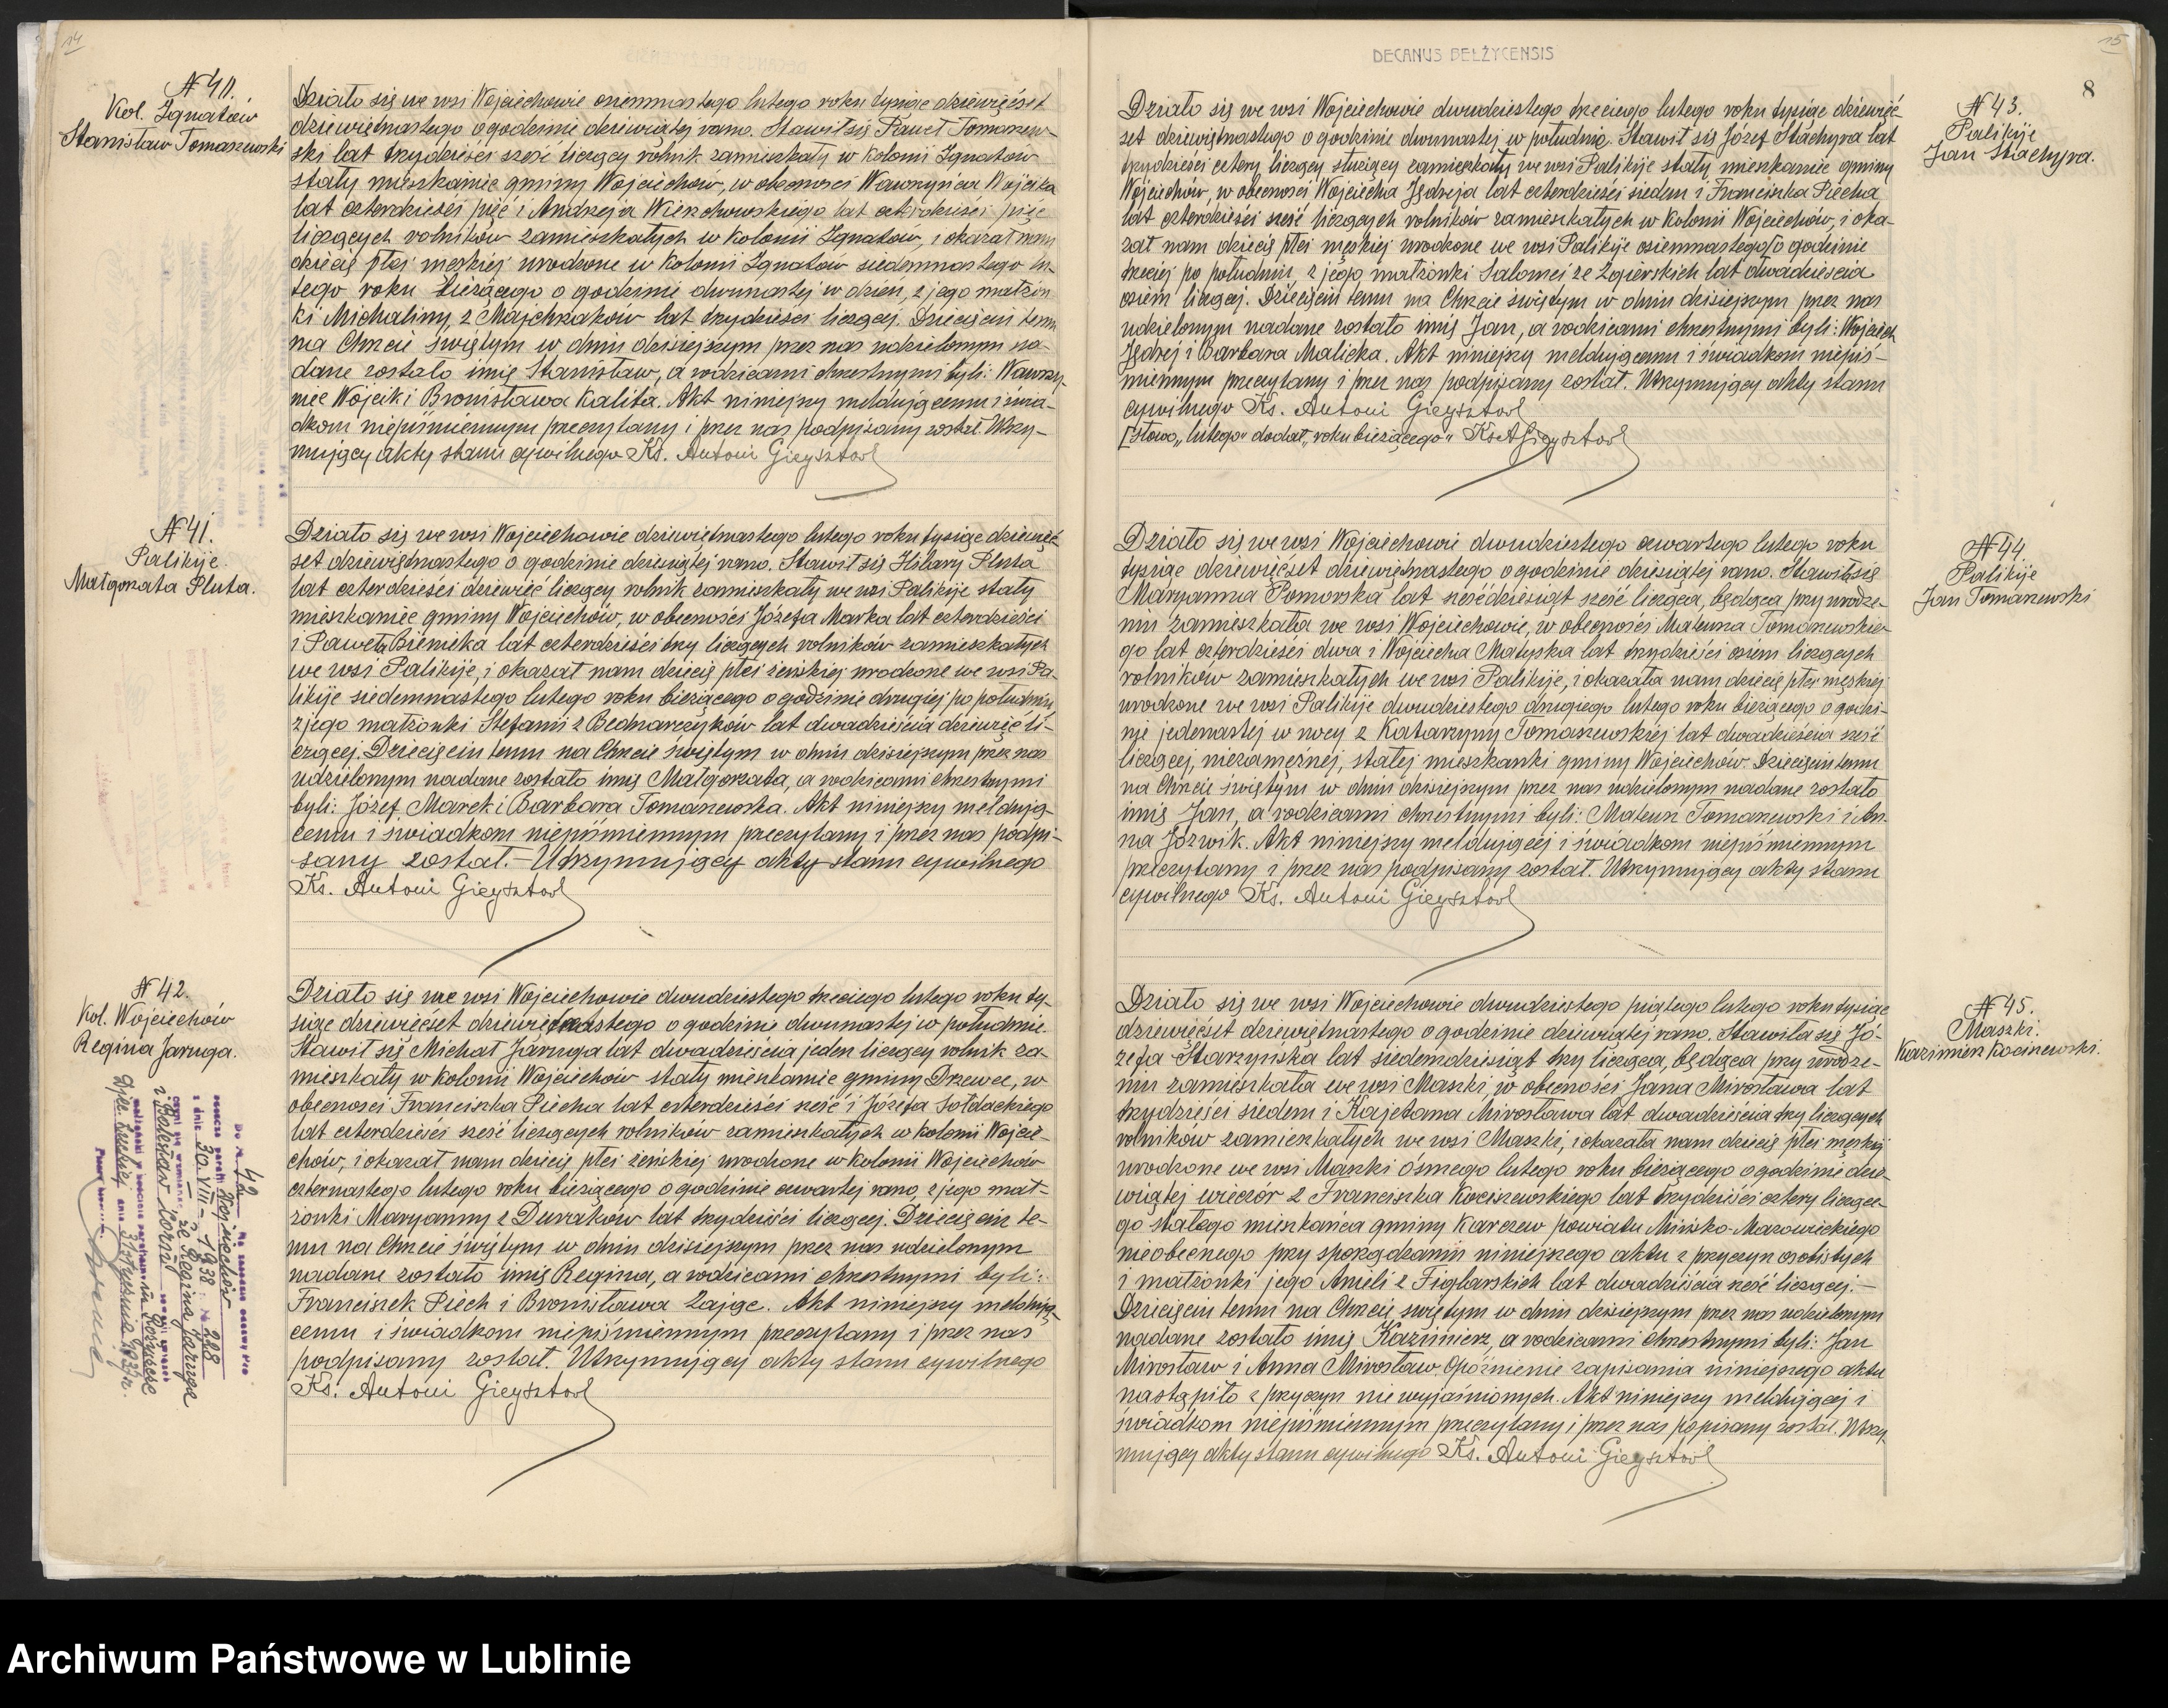 14
N 40.
Kol. Ignatów
Stanisław Tomaszewski
Działo się we wsi Wojciechowie osiemnastego lutego roku tysiąc dziewięćset
dziewiętnastego o godzinie dziewiątej rano. Stawił się Paweł Tomaszew-
ski lat trzydzieści sześć liczący rolnik zamieszkały w Kolonii Ignatów
stały mieszkaniec gminy Wojciechów, w obecności Wawrzyńca Wójcika
lat czterdzieści pięć i Andrzeja Wierzchowskiego lat czterdzieści pięć
liczących rolników zamieszkałych w Kolonii Ignatów, i okazał nam
dziecię płci męskiej urodzone w Kolonii Ignatów siedemnastego lu-
tego roku bieżącego o godzinie dwunastej w dzień, z jego małżon
ki Michaliny, z Majchrzaków lat trzydzieści liczącej. Dziecięciu temu
na Chrzcie świętym w dniu dzisiejszym przez nas udzielonym na-
dane zostało imię Stanisław, a rodzicami chrzestnymi byli: Wawrzy-
niec Wójcik i Bronisława Kalita. Akt niniejszy meldującemu i świa-
dkom niepiśmiennym przeczytany i przez nas podpisany został. Utrzy-
mujący akty stanu cywilnego Ks. Antoni Gieysztor
N 41.
Palikije.
Małgorzata Pluta.
Działo się we wsi Wojciechowie dziewiętnastego lutego roku tysiąc dziewięć-
set dziewiętnastego o godzinie dziesiątej rano. Stawił się Hilary Pluta
lat czterdzieści dziewięć liczący rolnik zamieszkały we wsi Palikije stały
mieszkaniec gminy Wojciechów, w obecności Józefa Marka lat czterdzieści
i Pawła Bieniska lat czterdzieści trzy liczących rolników zamieszkałych
we wsi Palikije, i okazał nam dziecię płci żeńskiej urodzone we wsi Pa-
likije siedemnastego lutego roku bieżącego o godzinie drugiej po południu,
z jego małżonki Stefanii z Bednarczyków lat dwadzieścia dziewięć li-
czącej. Dziecięciu temu na Chrzcie świętym w dniu dzisiejszym przez nas
udzielonym nadane zostało imię Małgorzata, a rodzicami chrzestnymi
byli: Józef Marek i Barbara Tomaszewska. Akt niniejszy meldują-
cemu i świadkom niepiśmiennym przeczytany i przez nas podpi-
sany został. – Utrzymujący akty stanu cywilnego
Ks. Antoni Gieysztor
N 42.
Kol. Wojciechów
Regina Jaruga.
Działo się we wsi Wojciechowie dwudziestego trzeciego lutego roku ty-
siąc dziewięćset dziewiętnastego o godzinie dwunastej w południe.
Stawił się Michał Jaruga lat dwadzieścia jeden liczący rolnik za-
mieszkały w Kolonii Wojciechów stały mieszkaniec gminy Drzewce, w
obecności Franciszka Piecha lat czterdzieści sześć i Józefa Sołdackiego
lat czterdzieści sześć liczących rolników zamieszkałych w Kolonii Wojcie-
chów, i okazał nam dziecię płci żeńskiej urodzone w Kolonii Wojciechów
czternastego lutego roku bieżącego o godzinie czwartej rano, z jego mał-
żonki Maryanny z Duraków lat trzydzieści liczącej. Dziecięciu te-
mu na Chrzcie świętym w dniu dzisiejszym przez nas udzielonym
nadane zostało imię Regina, a rodzicami chrzestnymi byli:
Franciszek Piech i Bronisława Zając. Akt niniejszy meldują-
cemu i świadkom niepiśmiennym przeczytany i przez nas
podpisany został. Utrzymujący akty stanu cywilnego
Ks. Antoni Gieysztor
Do N 42 Na zasadzie odezwy Pro
boszcza parafji Wojciechów
z dnia 30.VIII – 1938 r. № 228
że Regina Jaruga
z Bolesławem
15
DECANUS BEŁŻYCENSIS
8
N 43.
Palikije
Jan Stachyra.
Działo się we wsi Wojciechowie dwudziestego trzeciego lutego roku tysiąc dziewięć-
set dziewiętnastego o godzinie dwunastej w południe. Stawił się Józef Stachyra lat
trzydzieści cztery liczący służący zamieszkały we wsi Palikije stały mieszkaniec gminy
Wojciechów, w obecności Wojciecha Jędreja lat czterdzieści siedem i Franciszka Piecha
lat czterdzieści sześć liczących rolników zamieszkałych w Kolonii Wojciechów, i oka-
zał nam dziecię płci męskiej urodzone we wsi Palikije osiemnastego o godzinie
trzeciej po południu, z jego małżonki Salomei ze Zgierskich lat dwadzieścia
osiem liczącej. Dziecięciu temu na Chrzcie świętym w dniu dzisiejszym przez nas
udzielonym nadane zostało imię Jan, a rodzicami chrzestnymi byli: Wojciech
Jędrej i Barbara Malicka. Akt niniejszy meldującemu i świadkom niepiś-
miennym przeczytany i przez nas podpisany został. Utrzymujący akty stanu
cywilnego Ks. Antoni Gieysztor
[słowo „lutego" dodał „roku bieżącego" Ks A Gieysztor
N 44.
Palikije
Jan Tomaszewski
Działo się we wsi Wojciechowie dwudziestego czwartego lutego roku
tysiąc dziewięćset dziewiętnastego o godzinie dziesiątej rano. Stawiła się
Maryanna Pomorska lat sześćdziesiąt sześć licząca, będąca przy urodze-
niu zamieszkała we wsi Wojciechowie, w obecności Mateusza Tomaszewskie-
go lat czterdzieści dwa i Wojciecha Matyska lat trzydzieści osiem liczących
rolników zamieszkałych we wsi Palikije, i okazała nam dziecię płci męskiej
urodzone we wsi Palikije dwudziestego drugiego lutego roku bieżącego o godzi-
nie jedenastej w nocy z Katarzyny Tomaszewskiej lat dwadzieścia sześć
liczącej, niezamężnej, stałej mieszkanki gminy Wojciechów. Dziecięciu temu
na Chrzcie świętym w dniu dzisiejszym przez nas udzielonym nadane zostało
imię Jan, a rodzicami chrzestnymi byli: Mateusz Tomaszewski i An-
na Józwik. Akt niniejszy meldującej i świadkom niepiśmiennym
przeczytany i przez nas podpisany został. Utrzymujący akty stanu
cywilnego Ks. Antoni Gieysztor
N 45.
Maszki.
Kazimierz Kociszewski.
Działo się we wsi Wojciechowie dwudziestego piątego lutego roku tysiąc
dziewięćset dziewiętnastego o godzinie dziewiątej rano. Stawiła się Jó-
zefa Starzyńska lat siedemdziesiąt trzy licząca, będąca przy urodze-
niu zamieszkała we wsi Maszki, w obecności Jana Mirosława lat
trzydzieści siedem i Kajetana Mirosława lat dwadzieścia trzy liczących
rolników zamieszkałych we wsi Maszki, i okazała nam dziecię płci męskiej
urodzone we wsi Maszki ósmego lutego roku bieżącego o godzinie dzie-
wiątej wieczór z Franciszka Kociszewskiego lat trzydzieści cztery liczące-
go stałego mieszkańca gminy Karczew powiatu Mińsko-Mazowieckiego
nieobecnego przy sporządzaniu niniejszego aktu z przyczyn osobistych
i małżonki jego Anieli z Figlarskich lat dwadzieścia sześć liczącej. –
Dziecięciu temu na Chrzcie świętym w dniu dzisiejszym przez nas udzielonym
nadane zostało imię Kazimierz, a rodzicami chrzestnymi byli: Jan
Mirosław i Anna Mirosław. Opóźnienie zapisania niniejszego aktu
nastąpiło z przyczyn niewyjaśnionych. Akt niniejszy meldującej i
świadkom niepiśmiennym przeczytany i przez nas popisany został. Utrzy-
mujący akty stanu cywilnego Ks. Antoni Gieysztor
Archiwum Państwowe w Lublinie